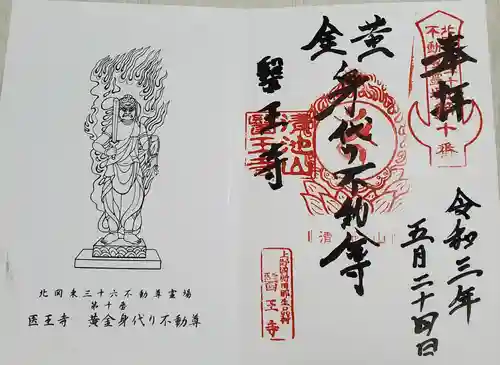 奉拝
令和三年
五月二十四日
黄金
身代り不動尊
醫王寺
清池山
醫王寺
北関東三十六不動尊霊場
第十番
医王寺　黄金身代り不動尊